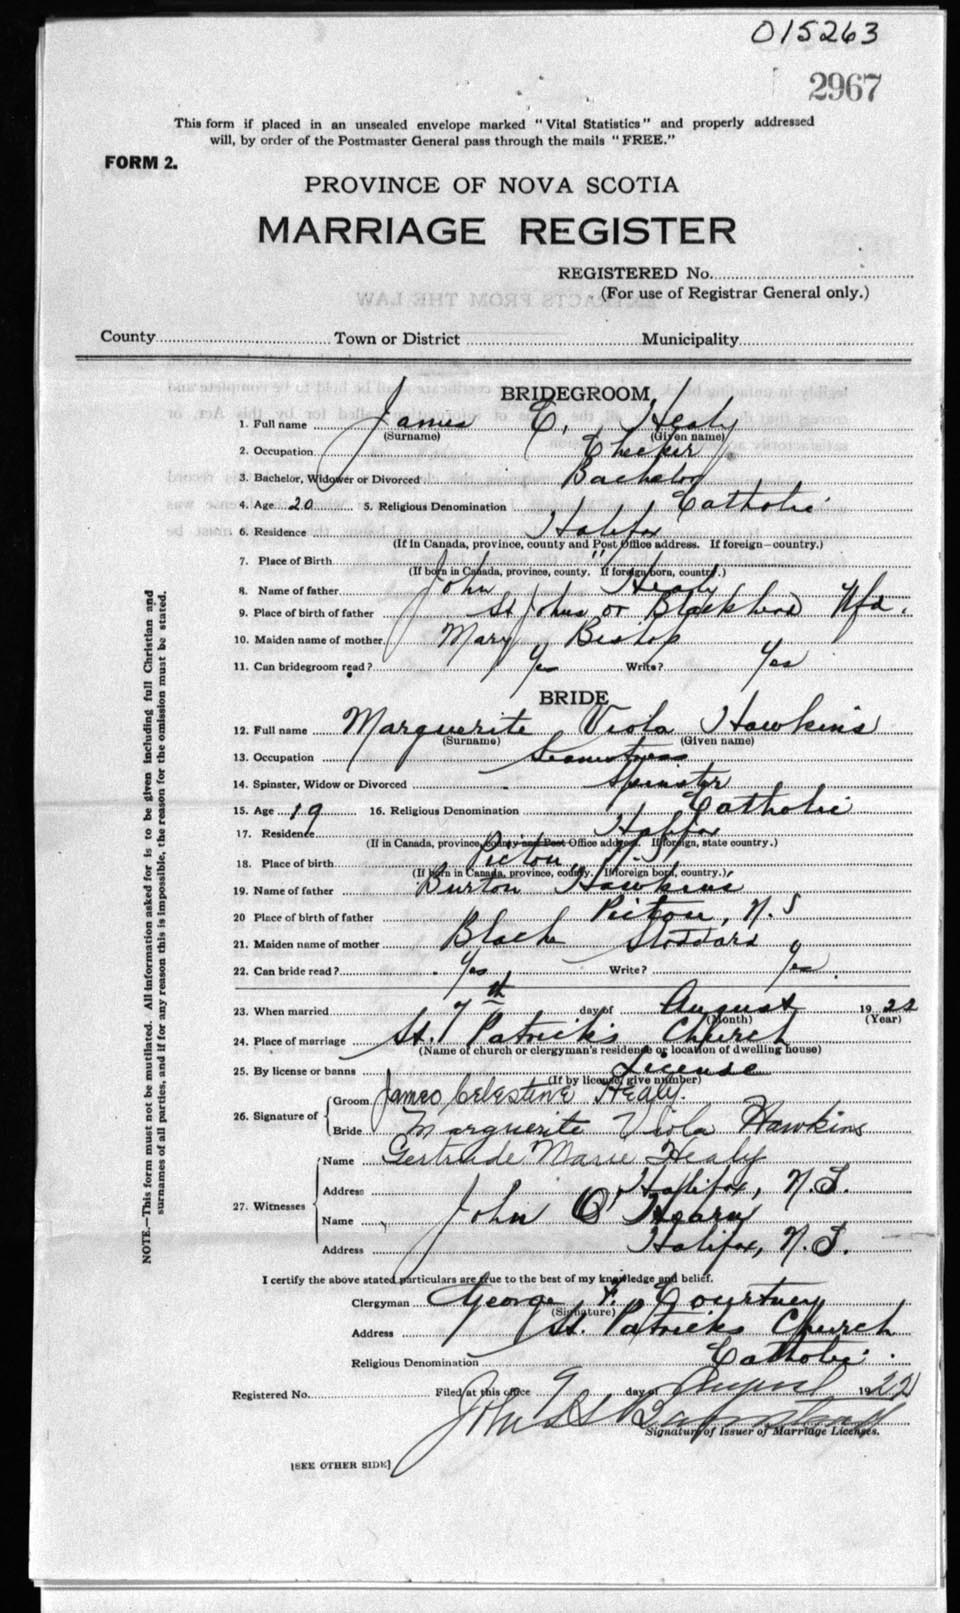 015263
2967
This form if placed in an unsealed envelope marked "Vital Statistics" and properly addressed
will, by order of the Postmaster General pass through the mails "FREE."
FORM 2.
PROVINCE OF NOVA SCOTIA
MARRIAGE REGISTER
REGISTERED No.
(For use of Registrar General only.)
County Town or District Municipality
BRIDEGROOM
1. Full name James C. Healy
(Surname) (Given name)
2. Occupation Checker
3. Bachelor, Widower or Divorced Bachelor
4. Age 20 5. Religious Denomination Catholic
6. Residence Halifax
(If in Canada, province, county and Post Office address. If foreign—country.)
7. Place of Birth "
(If born in Canada, province, county. If foreign born, country.)
8. Name of father John Healy
9. Place of birth of father St Johns or Blackhead Nfd.
10. Maiden name of mother Mary Bishop
11. Can bridegroom read? Yes Write? Yes
BRIDE
12. Full name Marguerite Viola Hawkins
(Surname) (Given name)
13. Occupation Seamstress
14. Spinster, Widow or Divorced Spinster
15. Age 19 16. Religious Denomination Catholic
17. Residence Halifax
(If in Canada, province, county and Post Office address. If foreign, state country.)
18. Place of birth Picton N.S
(If born in Canada, province, county. If foreign born, country.)
19. Name of father Burton Hawkins
20 Place of birth of father Pictou, N.S
21. Maiden name of mother Black Stoddard
22. Can bride read? Yes Write? Yes
23. When married 7th day of August 1922
(Month) (Year)
24. Place of marriage St. Patrick's Church
(Name of church or clergyman's residence or location of dwelling house)
25. By license or banns License
(If by license, give number)
26. Signature of Groom James Celestine Healy.
Bride Marguerite Viola Hawkins
27. Witnesses Name Gertrude Marie Healy
Address Halifax, N.S.
Name John O'Hearn
Address Halifax, N.S.
I certify the above stated particulars are true to the best of my knowledge and belief.
Clergyman George F. Courtney
(Signature)
Address St. Patricks Church
Religious Denomination Catholic
Registered No. Filed at this office 9 day of August 1922
John
Signature of Issuer of Marriage Licenses.
[SEE OTHER SIDE]
NOTE.—This form must not be mutilated. All information asked for is to be given including full Christian and
surnames of all parties, and if for any reason this is impossible, the reason for the omission must be stated.